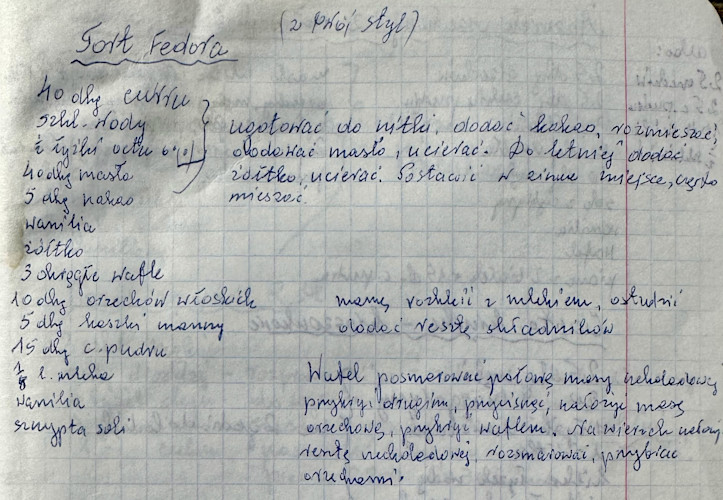 Tort Fedora
(z Twój styl)
40 dkg cukru
szkl. wody
½ łyżki octu 6%
40 dkg masła
5 dkg kakao
wanilia
żółtko
3 okrągłe wafle
ugotować do nitki, dodać kakao, rozmieszać,
dodawać masło, ucierać. Do letniej dodać
żółtko, ucierać. Postawić w zimne miejsce, często
mieszać.
10 dkg orzechów włoskich
5 dkg kaszki manny
15 dkg c. pudru
⅛ l. mleka
wanilia
szczypta soli
mannę rozkleić z mlekiem, ostudzić
dodać resztę składników
Wafel posmarować połową masy czekoladowej
przykryć drugim, przycisnąć, nałożyć masę
orzechową, przykryć waflem. Na wierzch nałożyć
resztę czekoladowej rozsmarować, przybrać
orzechami.